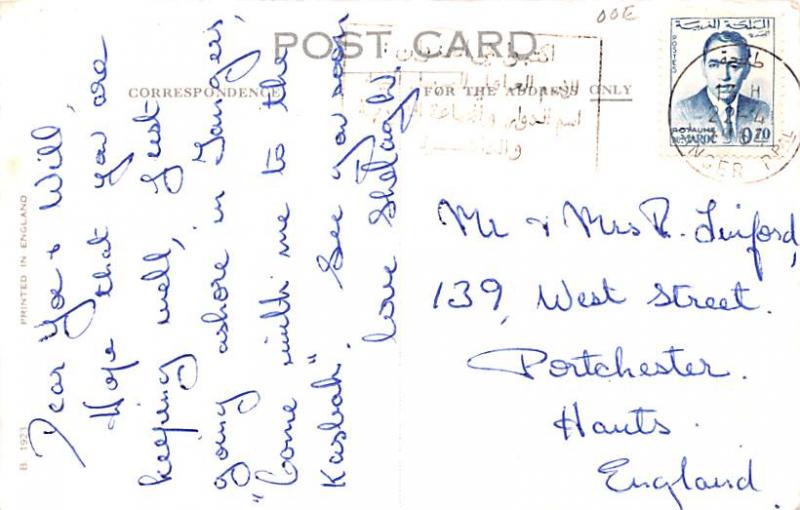 POST CARD
CORRESPONDENCE
FOR THE ADDRESS ONLY
Dear You & Will,
Hope that you are
keeping well, Just
going ashore in Tangiers,
"Come with me to the
Kasbah". See you soon
love Shelagh.
Mr & Mrs R. Linford,
139, West Street.
Portchester.
Hants.
England.
PRINTED IN ENGLAND
B 1923
OOE
المملكة المغربية
POSTES
ROYAUME
DU MAROC 0,20
طنجة